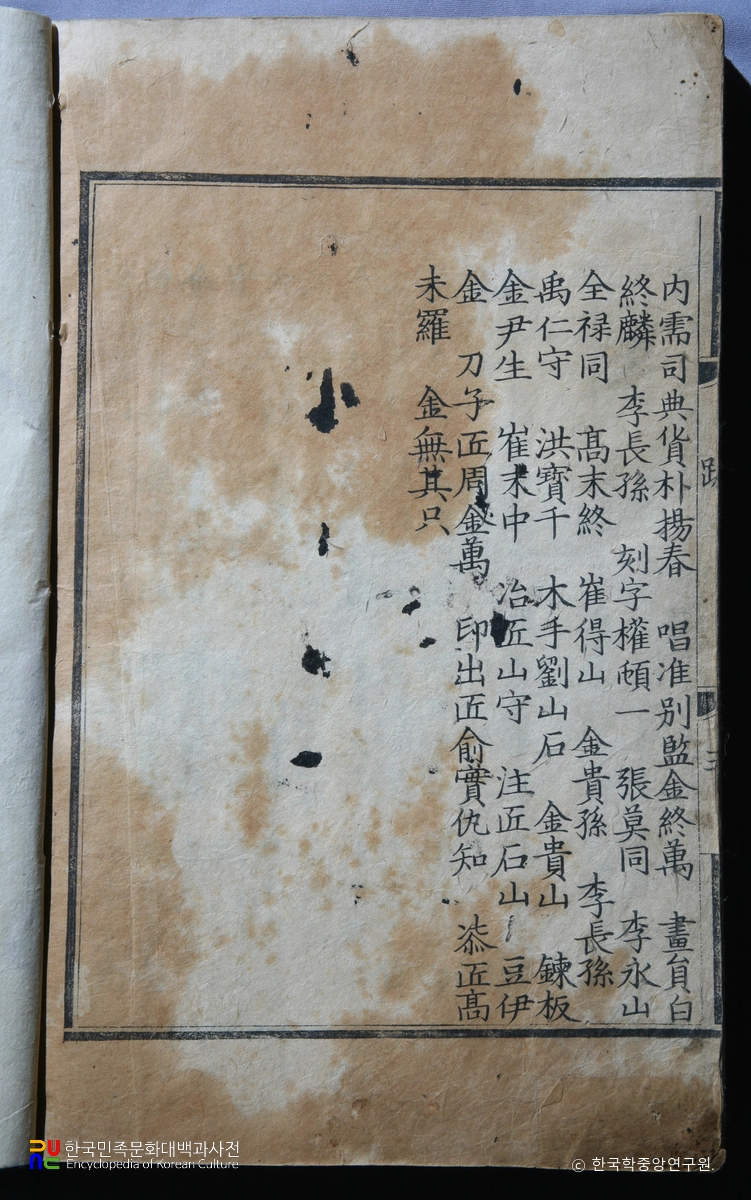 内需司典貨朴揚春 唱准别監金終萬 畫貟白
終麟 李長孫 刻字權頓一 張莫同 李永山
全禄同 髙末終 崔得山 金貴孫 李長孫
禹仁守 洪寶千 木手劉山石 金貴山 鍊板
金尹生 崔末中 冶匠山守 注匠石山 豆伊
金 刀子匠周金萬 印出匠俞實仇知 漆匠髙
未羅 金無其只
跋
한국민족문화대백과사전
Encyclopedia of Korean Culture
© 한국학중앙연구원